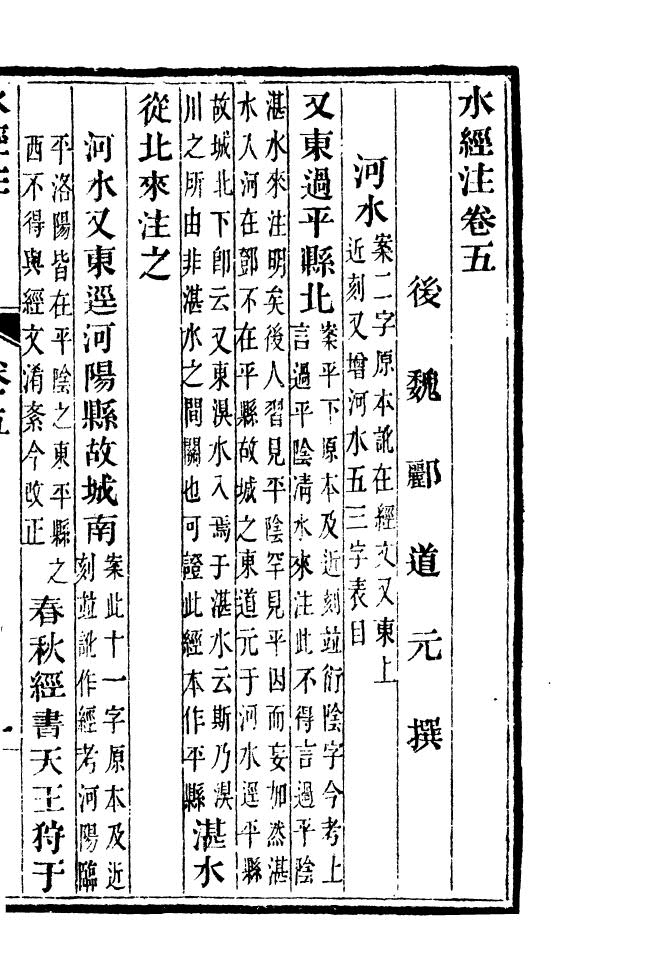 水經注卷五
後魏酈道元撰
河水
案二字原本訛在經文又東上
近刻又增河水五三字表目
又東過平縣北
案平下原本及近刻竝衍陰字今考上
言過平陰清水來注此不得言過平陰
湛水來注明矣後人習見平陰罕見平因而妄加然湛
水入河在鄧不在平縣故城之東道元于河水逕平縣
故城北下卽云又東湨水入焉于湛水云斯乃湨
川之所由非湛水之間關也可證此經本作平縣
湛水
從北來注之
河水又東逕河陽縣故城南
案此十一字原本及近
刻竝訛作經考河陽臨
平洛陽皆在平陰之東平縣之
西不得與經文淆紊今改正
春秋經書天王狩于
水經注
卷五
一